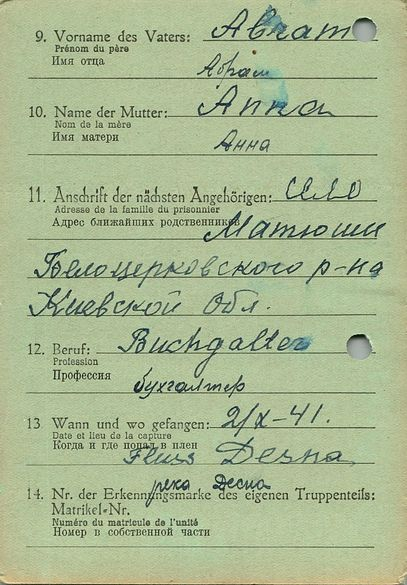 9. Vorname des Vaters: Abram
Prénom du père
Имя отца
Абрам
10. Name der Mutter: Anna
Nom de la mère
Имя матери
Анна
11. Anschrift der nächsten Angehörigen: село
Adresse de la famille du prisonnier
Адрес ближайших родственников Матюши
Белоцерковского р-на
Киевской обл.
12. Beruf: Buchgalter
Profession
Профессия
бухгалтер
13. Wann und wo gefangen: 2/X-41.
Date et lieu de la capture
Когда и где попал в плен
Fluss Desna
река Десна
14. Nr. der Erkennungsmarke des eigenen Truppenteils:
Matrikel-Nr.
Numéro du matricule de l'unité
Номер в собственной части